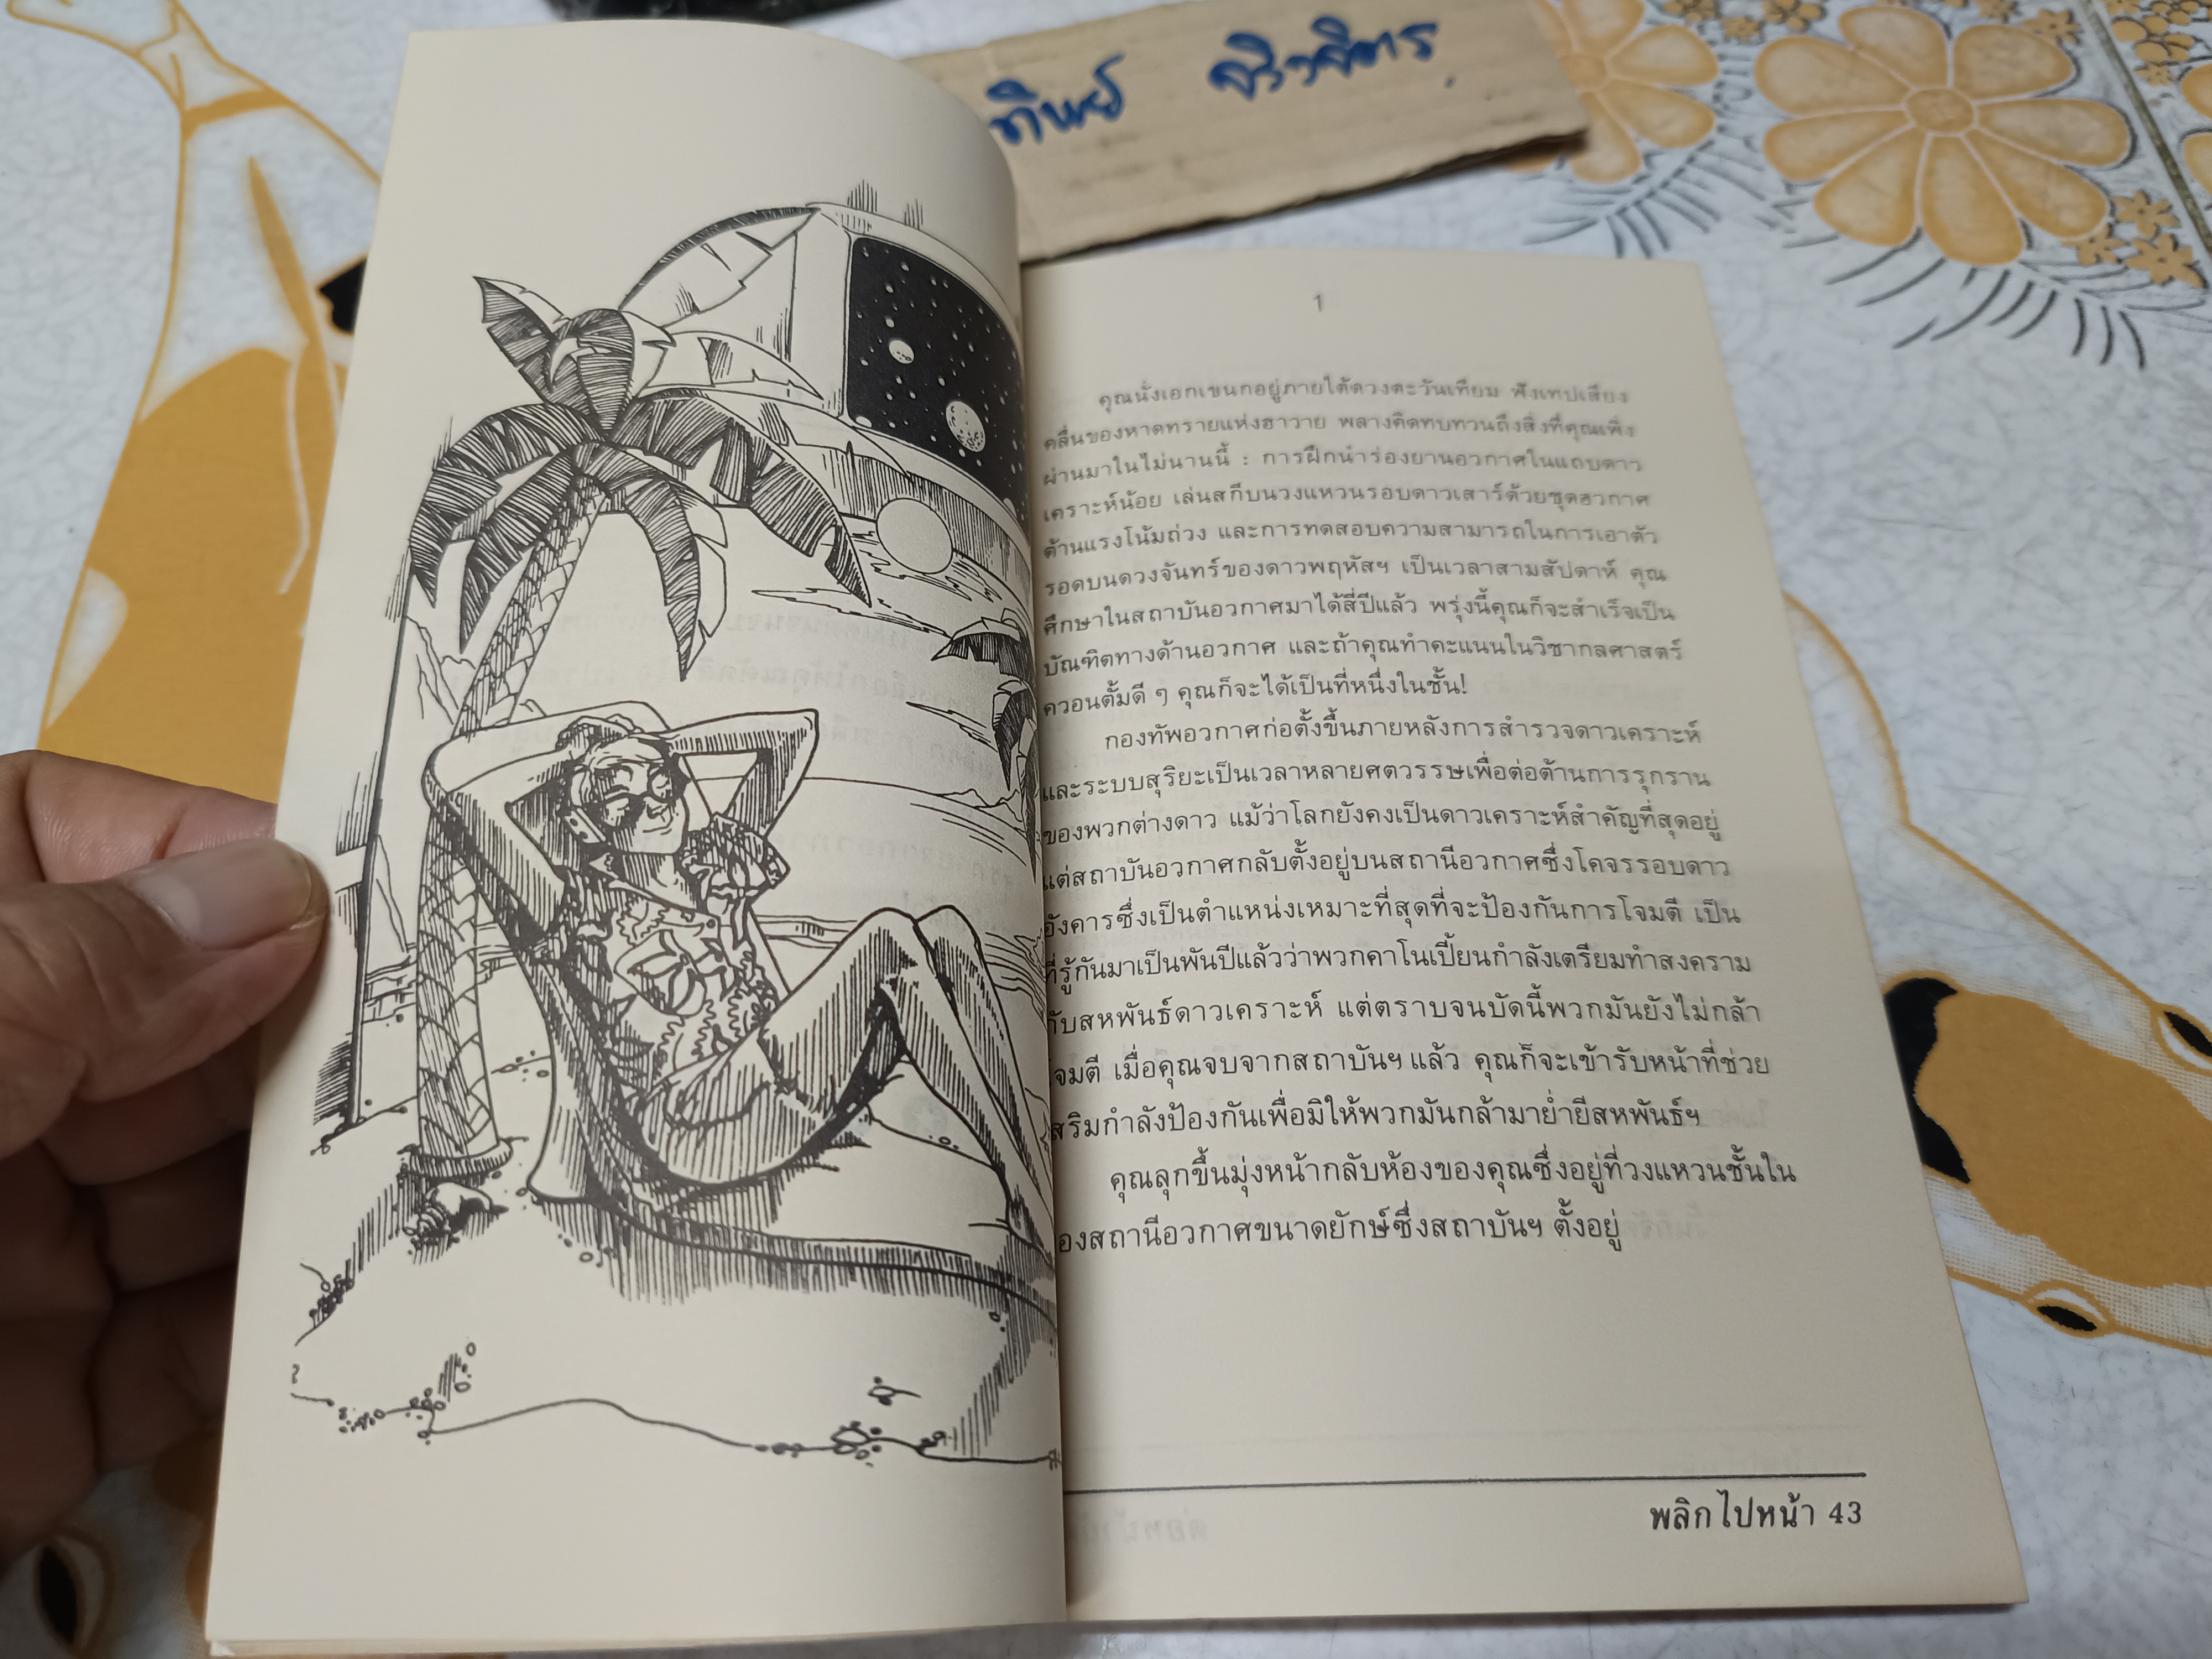 ทิพย์ จิวจิตร
1
คุณนั่งเอกเขนกอยู่ภายใต้ดวงตะวันเทียม ฟังเทปเสียง
คลื่นของหาดทรายแห่งฮาวาย พลางคิดทบทวนถึงสิ่งที่คุณเพิ่ง
ผ่านมาในไม่นานนี้ : การฝึกนำร่องยานอวกาศในแถบดาว
เคราะห์น้อย เล่นสกีบนวงแหวนรอบดาวเสาร์ด้วยชุดอวกาศ
ต้านแรงโน้มถ่วง และการทดสอบความสามารถในการเอาตัว
รอดบนดวงจันทร์ของดาวพฤหัสฯ เป็นเวลาสามสัปดาห์ คุณ
ศึกษาในสถาบันอวกาศมาได้สี่ปีแล้ว พรุ่งนี้คุณก็จะสำเร็จเป็น
บัณฑิตทางด้านอวกาศ และถ้าคุณทำคะแนนในวิชากลศาสตร์
ควอนตั้มดี ๆ คุณก็จะได้เป็นที่หนึ่งในชั้น!
กองทัพอวกาศก่อตั้งขึ้นภายหลังการสำรวจดาวเคราะห์
และระบบสุริยะเป็นเวลาหลายศตวรรษเพื่อต่อต้านการรุกราน
ของพวกต่างดาว แม้ว่าโลกยังคงเป็นดาวเคราะห์สำคัญที่สุดอยู่
แต่สถาบันอวกาศกลับตั้งอยู่บนสถานีอวกาศซึ่งโคจรรอบดาว
อังคารซึ่งเป็นตำแหน่งเหมาะที่สุดที่จะป้องกันการโจมตี เป็น
ที่รู้กันมาเป็นพันปีแล้วว่าพวกคาโนเปี้ยนกำลังเตรียมทำสงคราม
กับสหพันธ์ดาวเคราะห์ แต่ตราบจนบัดนี้พวกมันยังไม่กล้า
โจมตี เมื่อคุณจบจากสถาบันฯ แล้ว คุณก็จะเข้ารับหน้าที่ช่วย
เสริมกำลังป้องกันเพื่อมิให้พวกมันกล้ามาย่ำยีสหพันธ์ฯ
คุณลุกขึ้นมุ่งหน้ากลับห้องของคุณซึ่งอยู่ที่วงแหวนชั้นใน
ของสถานีอวกาศขนาดยักษ์ซึ่งสถาบันฯ ตั้งอยู่
พลิกไปหน้า 43